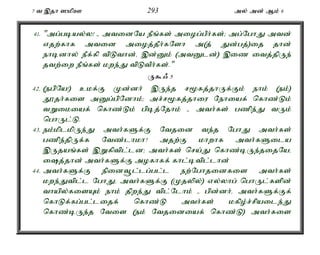 7 வ இதா ஸமிஊ 293 அல் அன் ஆம் 6
41. "அப்படியல்ல! , அவனையே நீங்கள் அழைப்பீர்கள்; அப்போது அவன்
எதற்காக அவனை அழைத்தீர்களோ அ(ந் துன்பத்)தை தான்
நாடினால் நீக்கி விடுவான். இன்னும் (அவனுடன்) இணை வைத்திருந்
தவற்றை நீங்கள் மறந்து விடுவீர்கள்."
ருகூஃ 5
42. (நபியே) உமக்கு முன்னர் இருந்த சமூகத்தாருக்கும் நாம் (நம்)
தூதர்களை அனுப்பினோம்; அச்சமூகத்தாரை நோயைக் கொண்டும்
வறுமையைக் கொண்டும் பிடித்தோம் - அவர்கள் பணிந்து வரும்
பொருட்டு.
43. நம்மிடமிருந்து அவர்களுக்கு வேதனை வந்த போது அவர்கள்
பணிந்திருக்க வேண்டாமா? அதற்கு மாறாக அவர்களுடைய
இருதயங்கள் இறுகிவிட்டன; அவர்கள் செய்து கொண்டிருந்ததையே
ஷைத்தான் அவர்களுக்கு அழகாகக் காட்டிவிட்டான்
44. அவர்களுக்கு நினைவூட்டப்பட்ட நற்போதனைகளை அவர்கள்
மறந்துவிட்ட போது, அவர்களுக்கு (முதலில்) எல்லாப் பொருட்களின்
வாயில்களையும் நாம் திறந்து விட்டோம் - பின்னர், அவர்களுக்குக்
கொடுக்கப்பட்டதைக் கொண்டு அவர்கள் மகிழ்ச்சியடைந்து
கொண்டிருந்த வேளை (நம் வேதனையைக் கொண்டு) அவர்களை